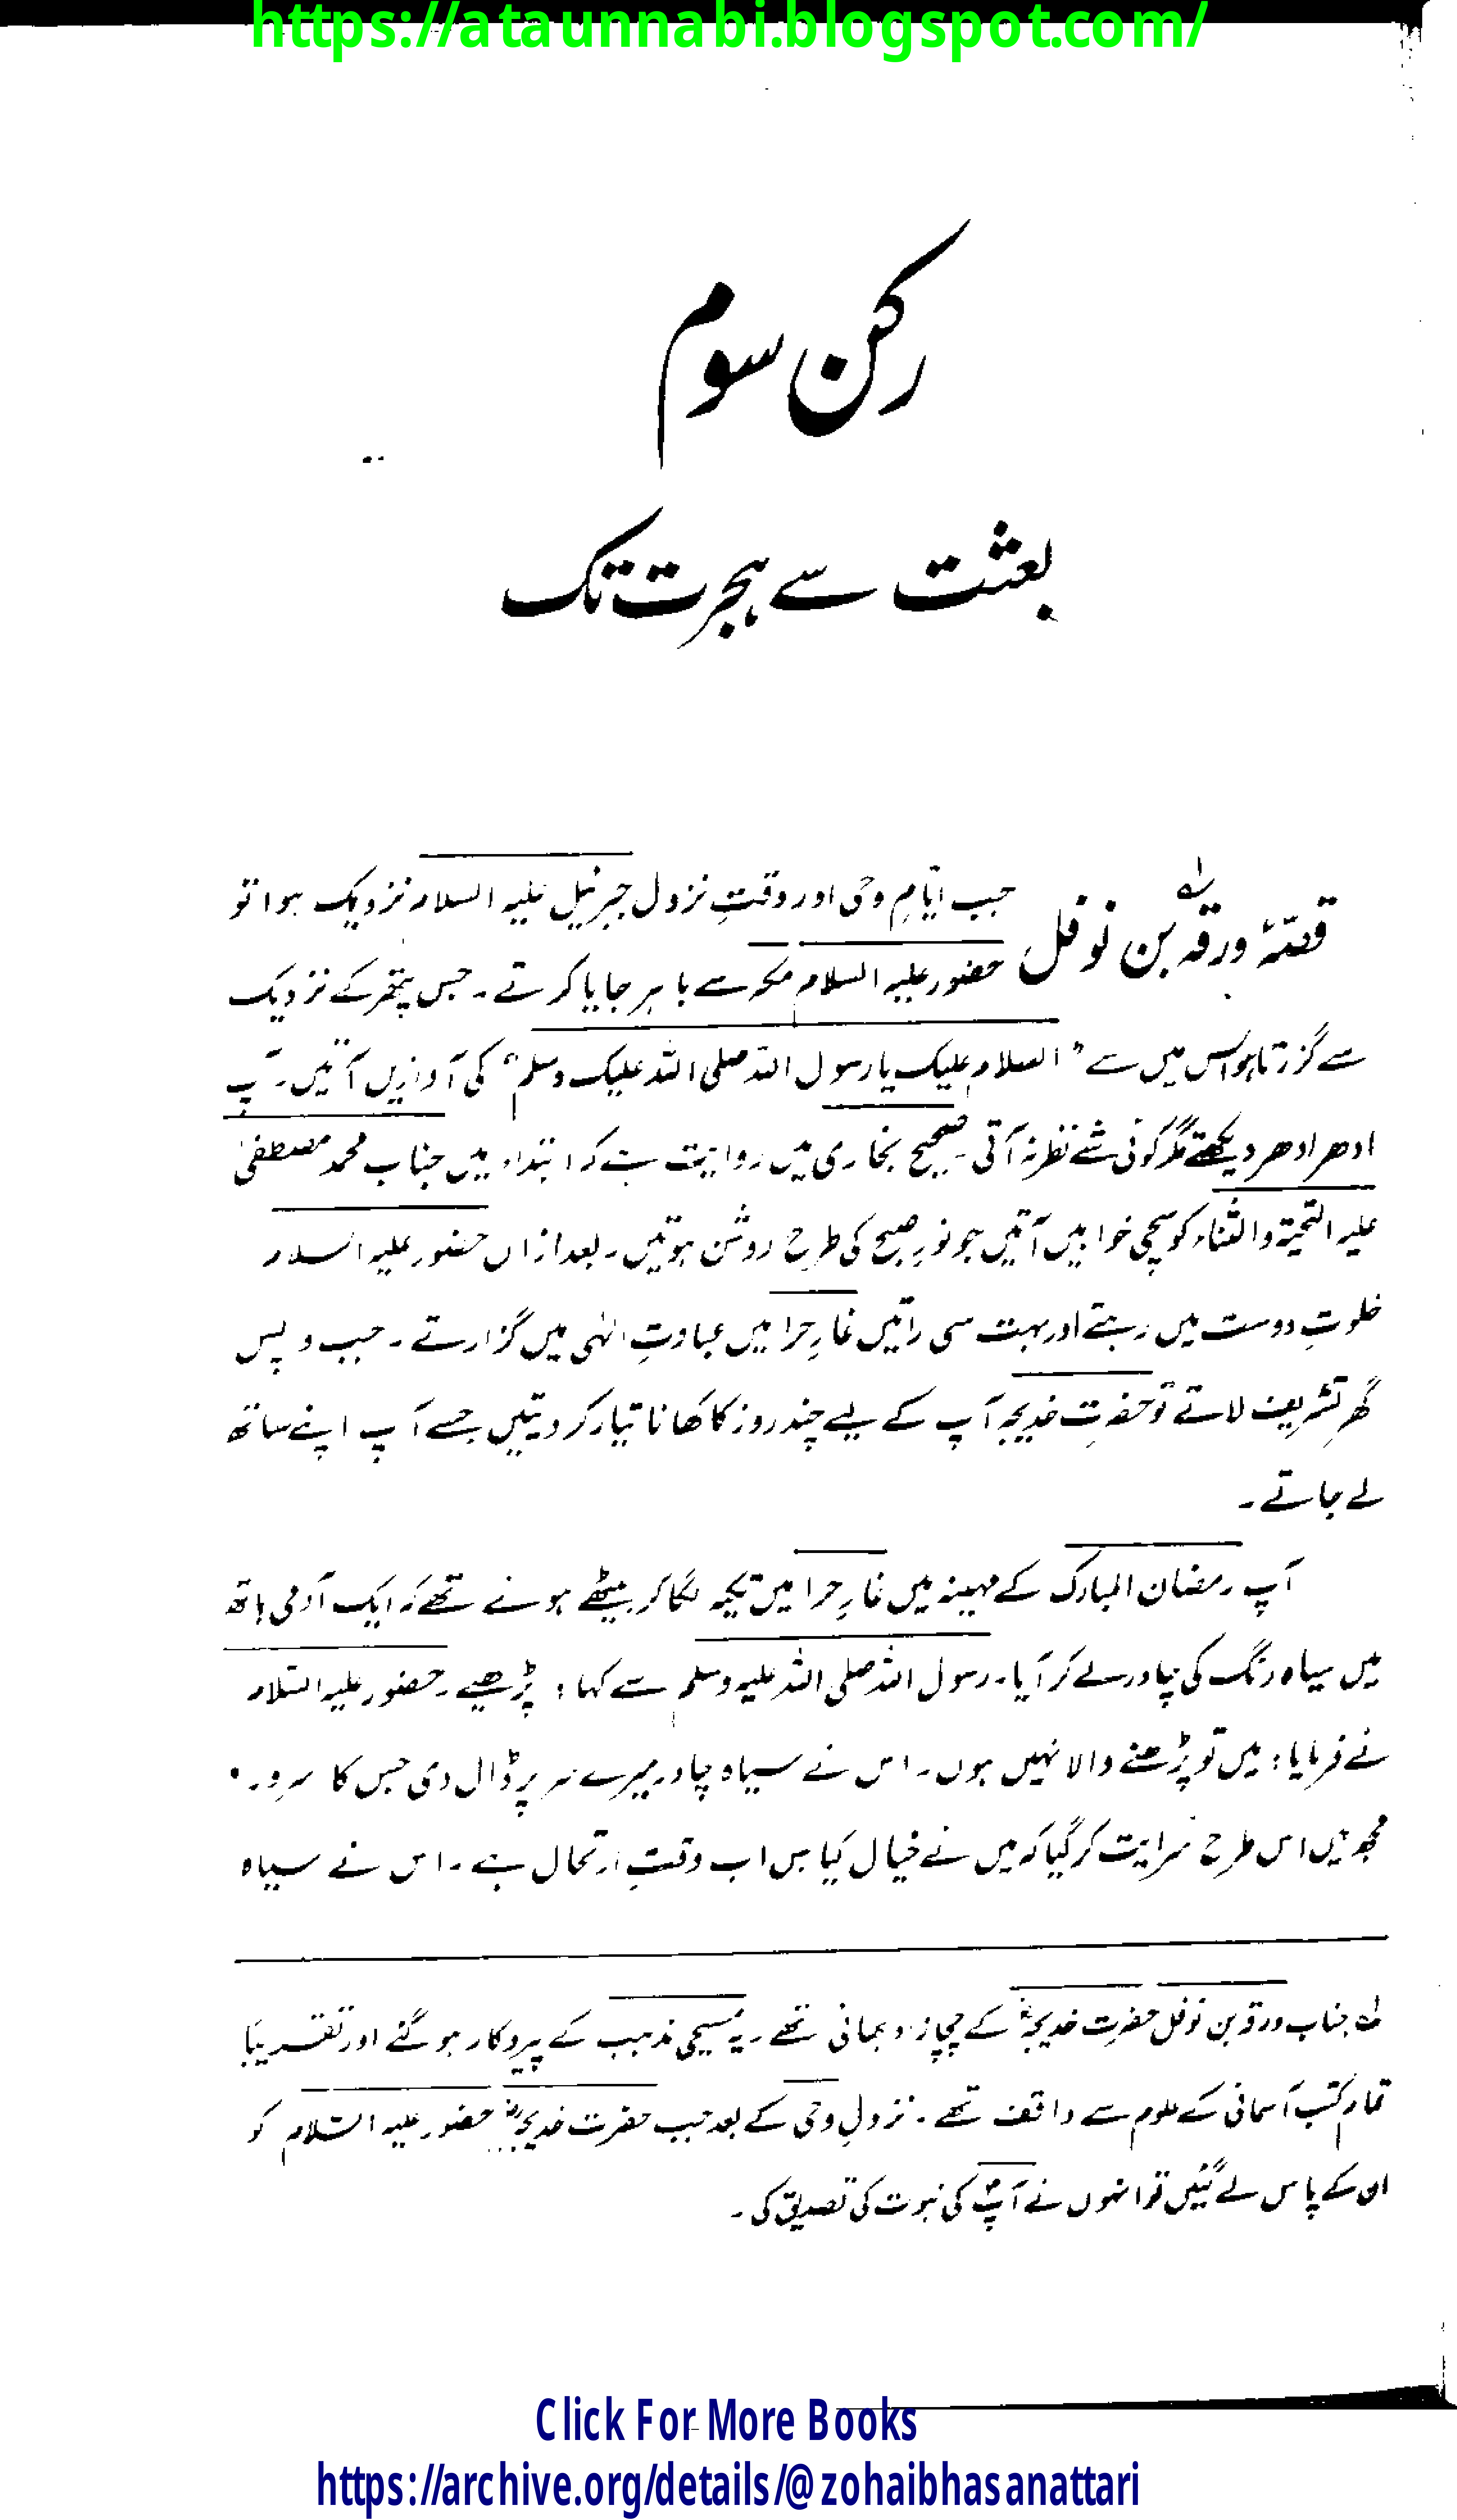 https://ataunnabi.blogspot.com/
رکن سوم
بعثت سے ہجرت تک
قصّۂ ورقہ بن نوفل
جب ایّامِ وحی اور وقتِ نزول جبرئیل علیہ السلام نزدیک ہوا تو
حضور علیہ السلام مکہ سے باہر جایا کرتے۔ جس پتھر کے نزدیک
سے گزرتا ہو اس میں سے "السلام علیک یا رسول اللہ صلی اللہ علیک وسلم" کی آوازیں آتیں۔ آپ
ادھر ادھر دیکھتے مگر کوئی شے نظر نہ آتی۔ صحیح بخاری میں روایت ہے کہ ابتداء میں جناب محمد مصطفیٰ
علیہ التحیۃ والثناء کو سچی خوابیں آتیں جو نورِ صبح کی طرح روشن ہوتیں۔ بعد ازاں حضور علیہ السلام
خلوتِ دوست میں رہتے اور بہت سی راتیں غارِ حرا میں عبادتِ الٰہی میں گزارتے۔ جب واپس
گھر تشریف لاتے تو حضرتِ خدیجہ آپ کے لیے چند روز کا کھانا تیار کر دیتیں جسے آپ اپنے ساتھ
لے جاتے۔
آپ رمضان المبارک کے مہینہ میں غارِ حرا میں تکیہ لگا کر بیٹھے ہوئے تھے کہ ایک آدمی ہاتھ
میں سیاہ رنگ کی چادر لے کر آیا۔ رسول اللہ صلی اللہ علیہ وسلم سے کہا: پڑھیے۔ حضور علیہ السّلام
نے فرمایا: میں تو پڑھنے والا نہیں ہوں۔ اس نے سیاہ چادر میرے سر پر ڈال دی جس کا سرور
مجھ میں اس طرح سرایت کر گیا کہ میں نے خیال کیا بس اب وقتِ ارتحال ہے۔ اس نے سیاہ
لہ جناب ورقہ بن نوفل حضرتِ خدیجہؓ کے چچا زاد بھائی تھے۔ یہ مسیحی مذہب کے پیروکار ہو گئے اور تقریباً
تمام کتب آسمانی کے علوم سے واقف تھے۔ نزولِ وحی کے بعد جب حضرت خدیجہؓ حضور علیہ السّلام کو
ان کے پاس لے گئیں تو انہوں نے آپؐ کی نبوت کی تصدیق کی۔
Click For More Books
https://archive.org/details/@zohaibhasanattari